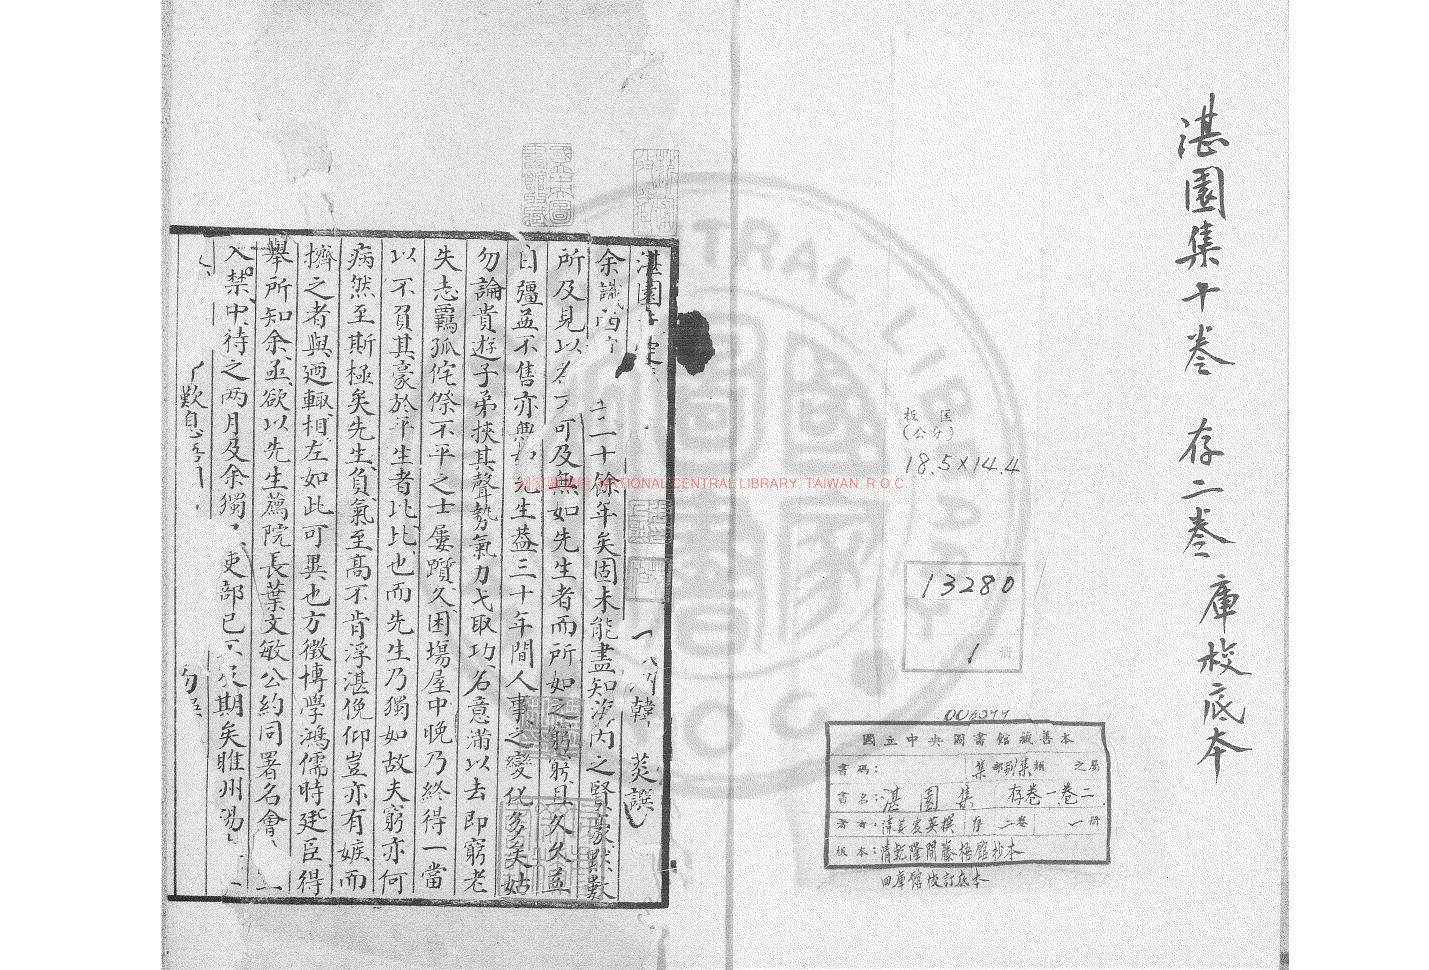 湛園集十卷 存二卷 庫校底本
板匡
(公分)
18.5×14.4
13280
1 册
國立中央圖書館藏善本
書碼： 集部別集類 之屬
書名：湛園集 存卷一卷二
著者：清姜宸英撰 存 二卷 一册
板本：清乾隆間藤梧館抄本
四庫館校訂底本
湛園 韓 菼譔
余識 二十餘年矣固未能盡知海内之賢豪默數
所及見以 可及無如先生者而所如之窮窮且久久益
自彊益不售亦無如先生蓋三十年間人事之變化多矣姑
勿論貴遊子弟挾其聲勢氣力弋取功名意滿以去即窮老
失志羈孤侘傺不平之士屢躓久困塲屋中晚乃終得一當
以不負其豪於平生者比比也而先生乃獨如故夫窮亦何
病然至斯極矣先生負氣至高不肯浮湛俛仰豈亦有嫉而
擠之者與廼輒相左如此可異也方徵博學鴻儒時廷臣得
舉所知余亟欲以先生薦院長葉文敏公約同署名會
入禁中待之兩月及余獨 吏部已不及期矣睢州湯
歎息
NATIONAL CENTRAL LIBRARY, TAIWAN, R.O.C